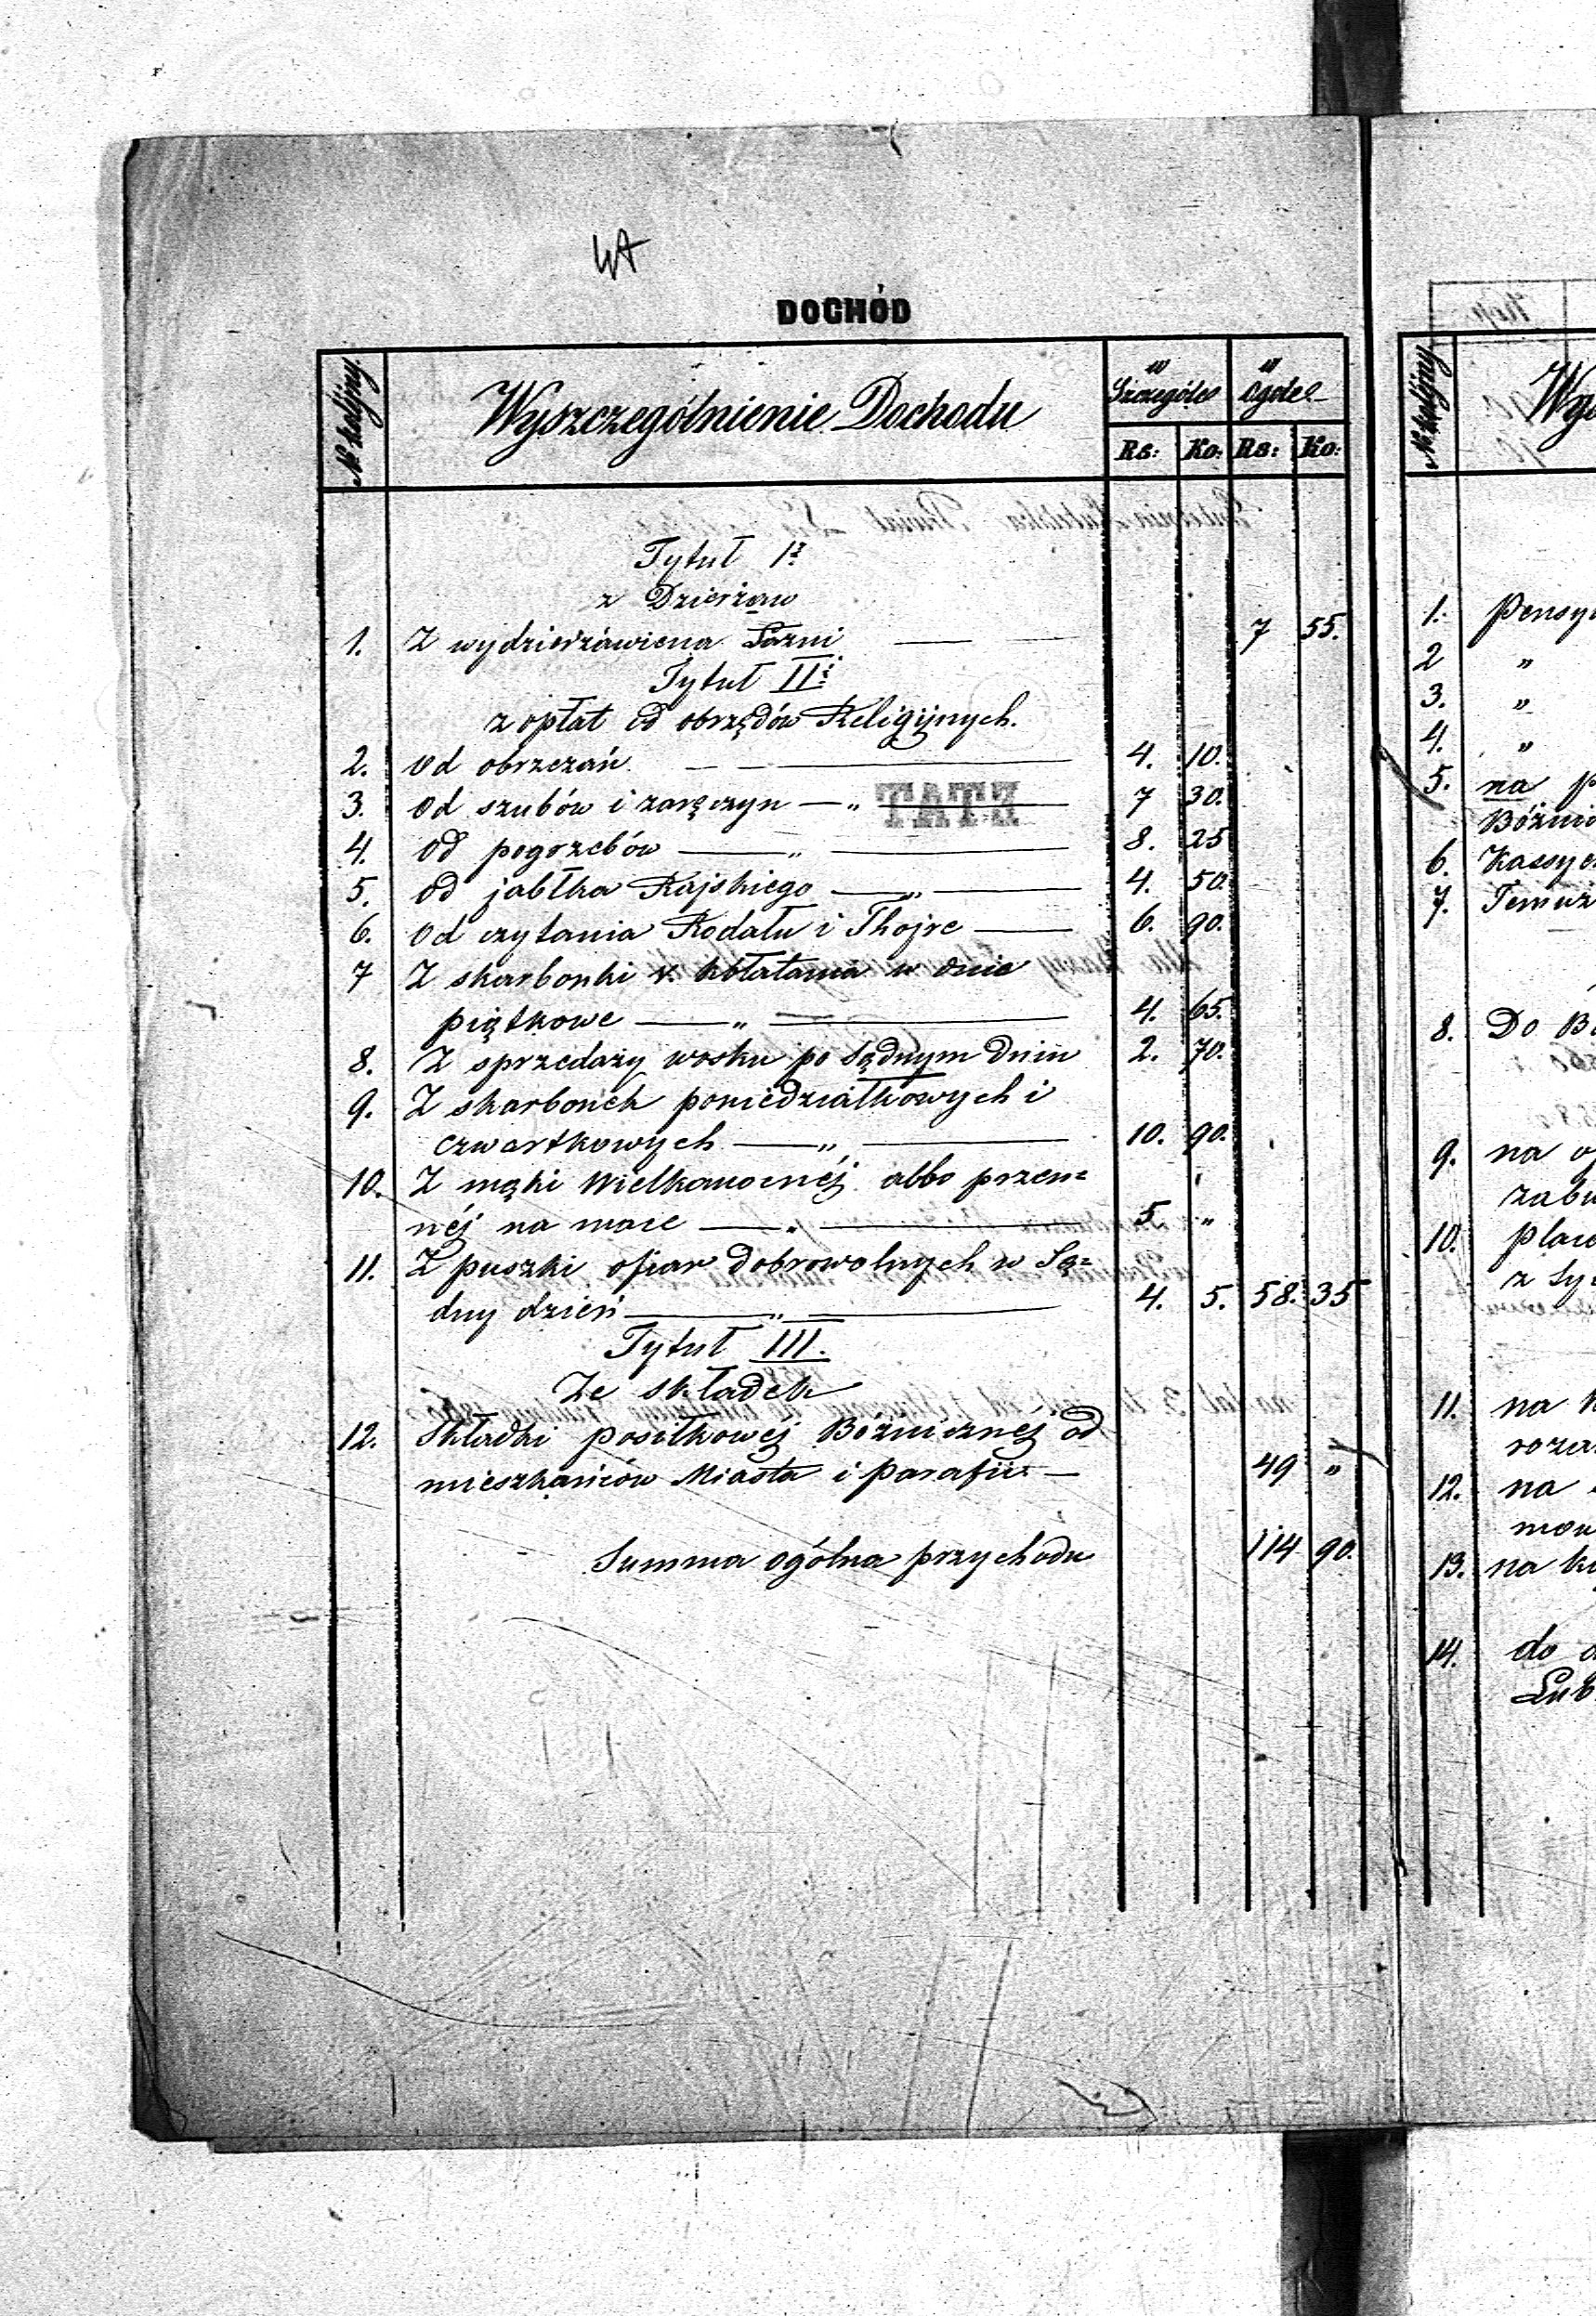 DOCHÓD
№ kolejny.
Wyszczególnienie Dochodu
w Szczególe
w ogóle
Rs: Ko: Rs: Ko:
Tytuł I.
z Dzierżaw
1. Z wydzierżawiena Łaźni — 7 55.
Tytuł II.
z opłat od obrzędów Religijnych.
2. Od obrzezań — 4. 10.
3. Od szubów i zaręczyn — „ — 7 30.
ETAT
4. Od pogrzebów — „ — 8. 25
5. Od jabłka Rajskiego — „ — 4. 50.
6. Od czytania Rodału i Thojre — 6. 90.
7 Z skarbonki kołatania w dnie
piątkowe — „ — 4. 65.
8. Z sprzedaży wosku po Sądnym Dniu 2. 70.
9. Z skarbonek poniedziałkowych i
czwartkowych — „ — 10. 90.
10. Z mąki Wielkanocnéj albo przen=
néj na mace — „ — 5. „
11. Z puszki ofiar dobrowolnych w Są=
dny dzień — „ — 4. 5. 58. 35
Tytuł III.
Ze składek
12. Składki posiłkowéj Bóźnicznéj od
mieszkańców Miasta i Parafii — 49 „
Summa ogólna przychodu 114 90.
№ kolejny
1. Pensy
2 „
3. „
4. „
5. na p
Bóźni
6. Kassye
7.
8. Do B
9. na o
zabu
10. plac
z
11. na
12. na
13. na
14. do
Lub